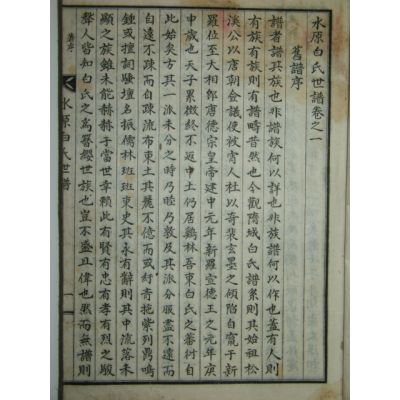 水原白氏世譜卷之一
舊譜序
譜者譜其族也非譜族何以詳也非族譜何以作也蓋有人則
有族有族則有譜疇昔然也今觀隋城白氏譜系則其始祖松
溪公以唐朝僉議使被宵人杜以奇裴玄墨之傾陷自竄于新
羅位至大相卽唐德宗皇帝建中元年新羅宣德王之元年庚
申歲也天子累徵終不返中土仍居鷄林吾東白氏之蕃衍自
此始矣古其一派未分之時乃睦乃敦及其派分服盡不遠而
自遠不疎而自疎流布東土其麗不億而或紆青拖紫列鼎鳴
鍾或擅詞騷壇名振儒林班班東史其永有辭則其中流落未
顯之族雖未能赫赫于當世幸賴此有賢有忠有孝有烈之駿
聲人皆知白氏之爲簪纓世族也豈不盛且偉也然而無譜則
舊序
水原白氏世譜
一